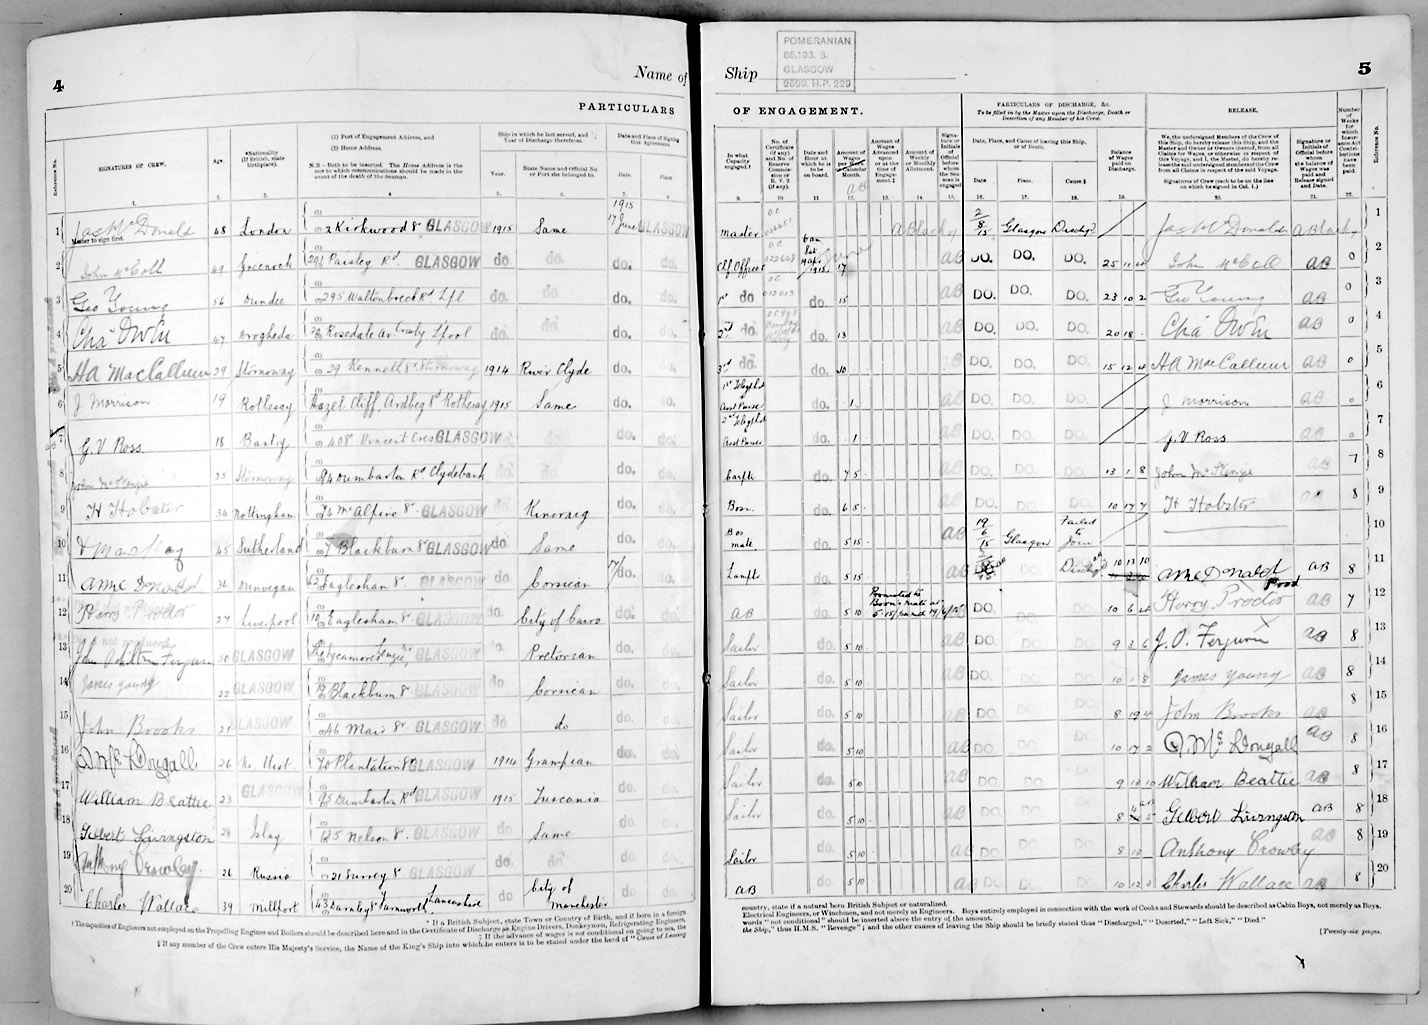 4
Name of
PARTICULARS
Reference No.
SIGNATURES OF CREW.
Age.
*Nationality
(If British, state
birthplace).
(1) Port of Engagement Address, and
(2) Home Address.
N.B - Both to be inserted. The Home Address is the
one to which communications should be made in the
event of the death of the Seaman.
Ship in which he last served, and
Year of Discharge therefrom.
Year.
State Name and Official No
or Port she belonged to.
Date and Place of Signing
this Agreement.
Date
Place
1915
1 Jas Mc Donald 48 London 2 Kirkwood St GLASGOW 1915 Same 17 June GLASGOW
Master to sign first.
2 John McColl 49 Greenock 201 Paisley Rd. GLASGOW do. do. do. do.
3 Geo Young 56 Dundee 295 Waltonbreck Rd Lpl do. do. do. do.
4 Chas Owen 47 Drogheda Rosedale Av. Crosby Lpool do. do. do. do.
5 HA MacCallum 29 Stornoway 29 Kenneth St Stornoway 1914 River Clyde do. do.
6 J Morrison 19 Rothesay Hazel Cliff, Ardbeg Rd Rothesay 1915 Same do. do.
7 G.V Ross. 18 Bantry 408 Vincent Cres GLASGOW do do. do. do.
8 John McKenzie 35 Stornoway 94 Dumbarton Rd Clydebank do. do. do. do.
9 H Hobster 34 Nottingham 76 McAlpine St. GLASGOW do Kincraig do. do.
10 45 Sutherland 7 Blackburn St GLASGOW do Same do. do.
11 36 Dunvegan 62 Eaglesham St. GLASGOW do Corsican 17/ do. do.
12 Harry Proctor 27 Liverpool 10 Eaglesham St GLASGOW do. City of Cairo do. do.
13 John Ferguson 50 GLASGOW GLASGOW do. Pretorian do. do.
14 James Young 22 GLASGOW Blackburn St GLASGOW do Corsican do. do.
15 John Brooks 21 GLASGOW 46 Mair St. GLASGOW do do do. do.
16 D. McDougall 26 No. Uist 70 Plantation St GLASGOW 1914 Grampian do. do.
17 William Beattie 23 GLASGOW 95 Dumbarton Rd GLASGOW 1915 Tuscania do. do.
18 Gilbert Livingston 28 Islay 125 Nelson St. GLASGOW do Same do. do.
19 Anthony Crowley 26 Russia 21 Surrey St GLASGOW do. do. do. do.
20 Charles Wallace 39 Millport 43 Darnley St Farnworth Lancashire do City of Manchester do. do.
* If a British Subject, state Town or Country of Birth, and if born in a foreign
† The capacities of Engineers not employed on the Propelling Engines and Boilers should be described here and in the Certificate of Discharge as Engine Drivers, Donkeymen, Refrigerating Engineers,
‡ If the advance of wages is not conditional on going to sea, the
§ If any member of the Crew enters His Majesty's Service, the Name of the King's Ship into which he enters is to be stated under the head of "Cause of Leaving
Ship
POMERANIAN
85,193. S.
GLASGOW
2699. H.P. 329
5
OF ENGAGEMENT.
PARTICULARS OF DISCHARGE, &c.
To be filled in by the Master upon the Discharge, Death or
Desertion of any Member of his Crew.
RELEASE.
In what
Capacity
engaged.†
No. of
Certificate
(if any)
and No. of
Reserve
Commission
or
R. V. 2
(if any).
Date and
Hour at
which he is
to be
on board.
Amount of
Wages
per
Calendar
Month.
Amount of
Wages
Advanced
upon
or at the
time of
Engagement.‡
Amount of
Weekly
or
Monthly
Allotment.
Date, Place, and Cause of leaving this Ship,
or of Death.
Date
Place.
Cause.§
Balance
of Wages
paid on
Discharge.
We, the undersigned Members of the Crew of
this Ship, do hereby release this Ship, and the
Master and Owner or Owners thereof, from all
Claims for Wages, or otherwise in respect of
this Voyage, and I, the Master, do hereby release
the undersigned Members of the Crew
from all Claims in respect of the said Voyage.
Signatures of Crew (each to be on the line
on which he signed in Col. 1.)
Signature or
Initials of
Official before
whom
the balance of
Wages was
Paid and
Release signed
and Date.
Number
of
Weeks
for
which
Insurance
Act
Contributions
have
been
paid.
Reference No.
Master A Black 2/8/15 Glasgow Dischgd Jas Mc Donald A Black 1
Chf Officer 17 DO. DO. DO. 25 11 4 John McColl AB 0 2
1st do do. 15 AB DO. DO. DO. 23 10 2 Geo Young AB 0 3
2nd do. do. 13 AB DO. DO. DO. 20 18 . Chas Owen AB 0 4
3rd do. do. 10 AB DO. DO. DO. 15 12 4 HA MacCallum AB 0 5
1st Telegphst & Asst Purser do. 1. AB DO. DO. DO. J Morrison AB 0 6
2nd Telegphst & Asst Purser do. 1 AB DO. DO. DO. G.V Ross AB 0 7
Carptr do. 7 5 . AB DO. DO. DO. 13 1 8 John McKenzie AB 7 8
Bosn. do. 6 5 . AB DO. DO. DO. 10 17 7 H Hobster AB 8 9
Bos mate. do. 5 15 . AB 19/6/15 Glasgow Failed to Join 10
Lampts do. 5 15 AB Dischgd 10 13 10 AB 8 11
AB do. 5 10 Promoted to Bosn's mate at 5-15/ AB DO. DO. DO. 10 6 4 Harry Proctor AB 7 12
Sailor do. 5 10 . AB DO. DO. DO. 9 3 6 J. O. Ferguson AB 8 13
Sailor do. 5 10 . AB DO. DO. DO. 10 1 8 James Young AB 8 14
Sailor do. 5 10 AB DO. DO. DO. 8 19 4 John Brooks AB 8 15
Sailor do. 5 10 AB DO. DO. DO. 10 17 2 D. McDougall AB 8 16
Sailor do. 5 0 . AB DO. DO. DO. 9 13 10 William Beattie AB 8 17
Sailor do. 5 10 . AB DO. DO. DO. 8 4 5 Gilbert Livingston AB 8 18
Sailor do. 5 10 . AB DO. DO. DO. 8 13 . Anthony Crowley AB 8 19
AB do. 5 10 AB DO. DO. DO. 10 12 3 Charles Wallace AB 8 20
country, state if a natural born British Subject or naturalized.
Electrical Engineers, or Winchmen, and not merely as Engineers. Boys entirely employed in connection with the work of Cooks and Stewards should be described as Cabin Boys, not merely as Boys.
words "not conditional" should be inserted above the entry of the amount.
the Ship," thus H.M.S. "Revenge"; and the other causes of leaving the Ship should be briefly stated thus "Discharged," "Deserted," "Left Sick," "Died."
[Twenty-six pages.